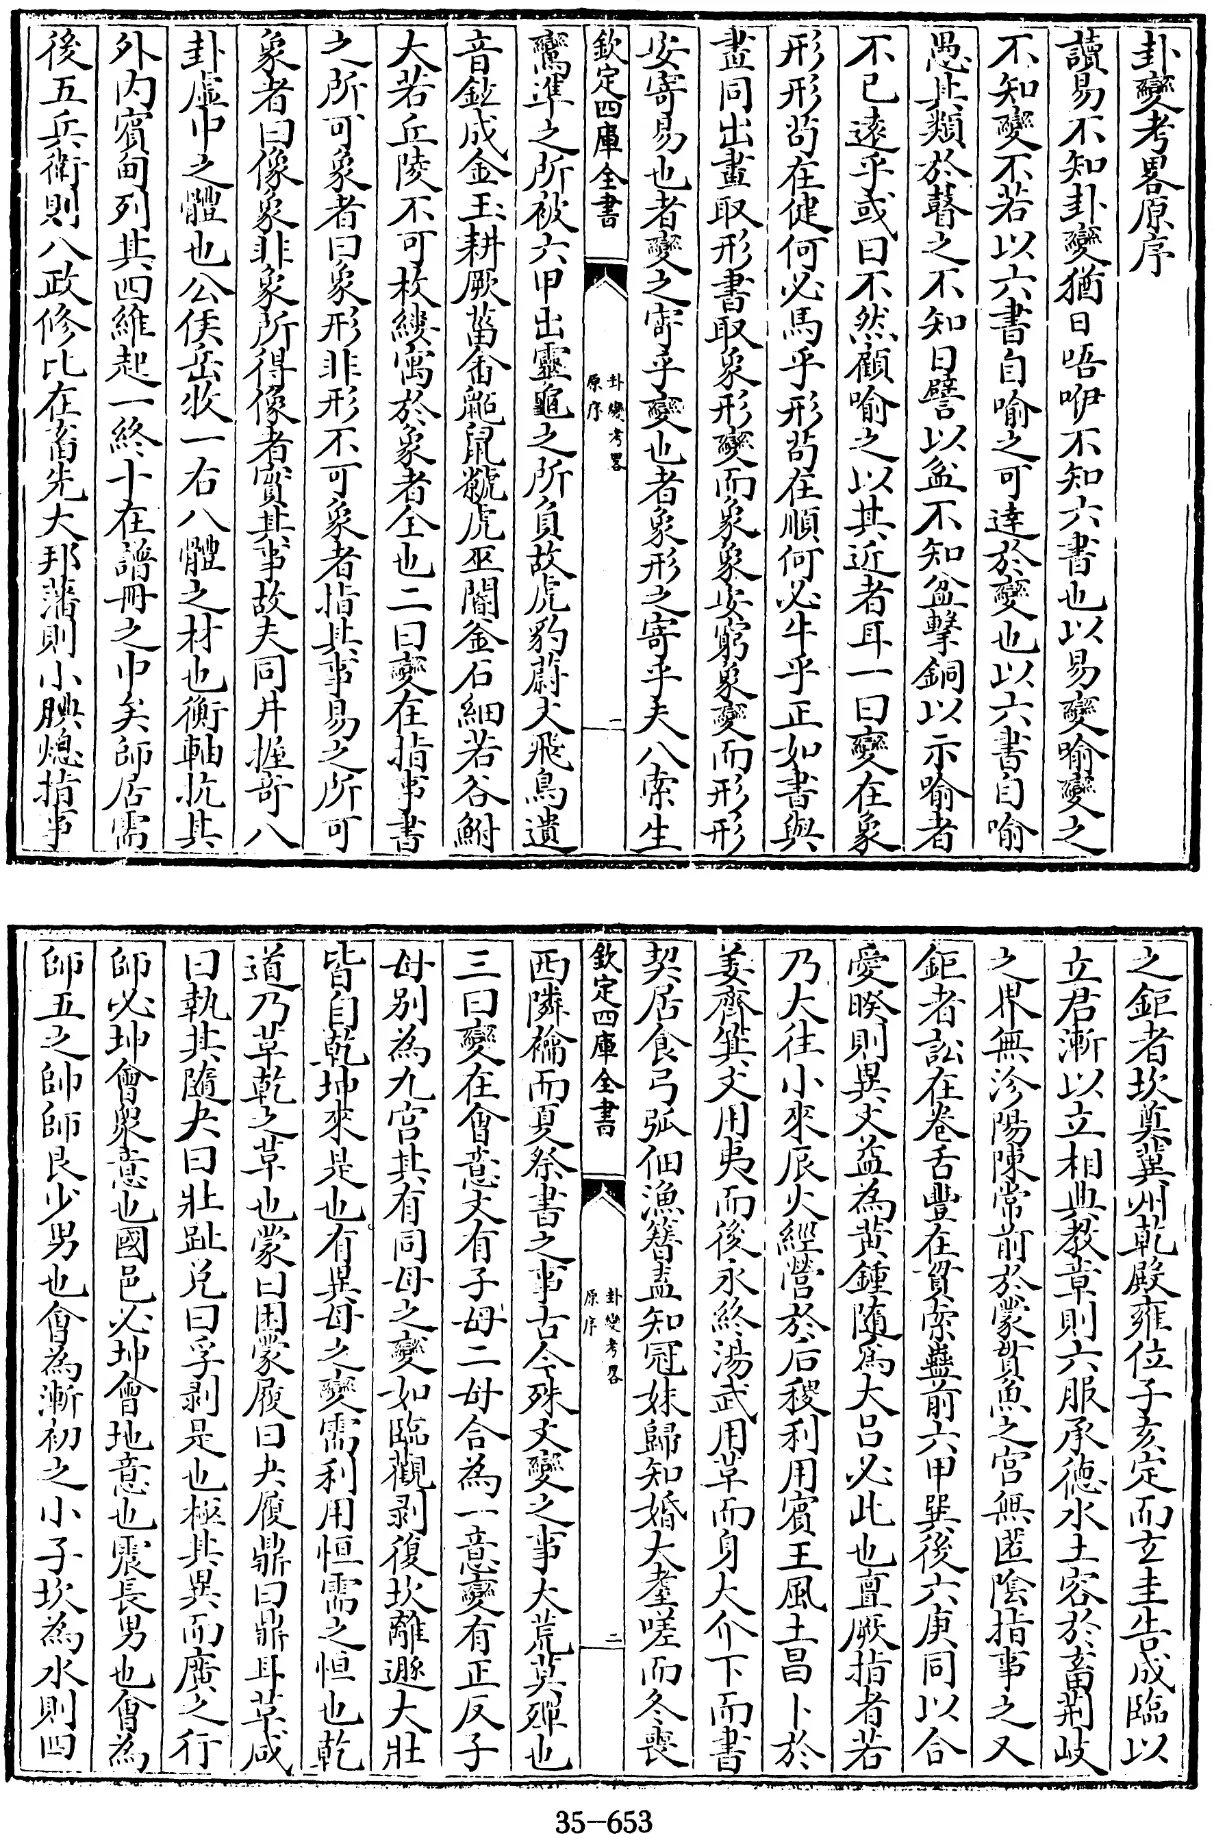 卦變考畧原序
讀易不知卦變猶日唔咿不知六書也以易變喻變之
不知變不若以六書自喻之可達於變也以六書自喻
愚其類於瞽之不知日譬以盆不知盆擊銅以示喻者
不已遠乎或曰不然顧喻之以其近者耳一曰變在象
形形茍在健何必馬乎形茍在順何必牛乎正如書與
畫同出畫取形書取象形變而象象安窮象變而形形
安寄易也者變之寄乎變也者象形之寄乎夫八索生
欽定四庫全書
卦變考畧
原序
一
鸞準之所被六甲出靈龜之所負故虎豹蔚文飛鳥遺
音鉉成金玉耕厥菑畬鼫鼠虩虎巫閽釜石細若谷鮒
大若丘陵不可枚縷寓於象者仝也二曰變在指事書
之所可象者曰象形非形不可象者指其事易之所可
象者曰像象非象所得像者實其事故夫同井握奇八
卦虛中之體也公侯岳牧一右八體之材也衡軸抗其
外內賓甸列其四維起一終十在譜冊之中矣師居需
後五兵衛則八政修比在畜先大邦藩則小腆熄指事
之鉅者坎奠冀州乾殿雍位子亥定而玄圭告成臨以
立君漸以立相典教章則六服承德水土容於畜荆岐
之界無沴陽陳常前於蒙貫魚之宮無匿陰指事之又
鉅者訟在卷舌豐在貫索蠱前六甲巽後六庚同以合
愛睽則異文益為黃鍾隨為大呂必此也亶厥指者若
乃大往小來辰火經營於后稷利用賓王風土昌卜於
姜齊箕文用夷而後永終湯武用革而身大介下而書
契居食弓弧佃漁簪盍知冠妹歸知婚大耋嗟而冬喪
欽定四庫全書
卦變考畧
原序
二
西隣禴而夏祭書之事古今殊文變之事大荒莫殫也
三曰變在會意文有子母二母合為一意變有正反子
母別為九宮其有同母之變如臨觀剥復坎離遯大壯
皆自乾坤來是也有異母之變需利用恒需之恒也乾
道乃革乾之革也蒙曰困蒙履曰夬履鼎曰鼎耳革咸
曰執其隨夬曰壯趾兌曰孚剥是也極其異而廣之行
師必坤會衆意也國邑必坤會地意也震長男也會為
師五之帥師艮少男也會為漸初之小子坎為水則四
35-653